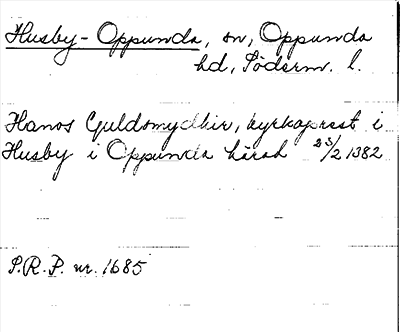 Husby-Oppunda, sn, Oppunda
hd, Söderm. l.
Hanos Guldsmydhir, kyrkoprest i
Husby i Oppunda härad 23/2 1382
S.R.P. nr. 1685